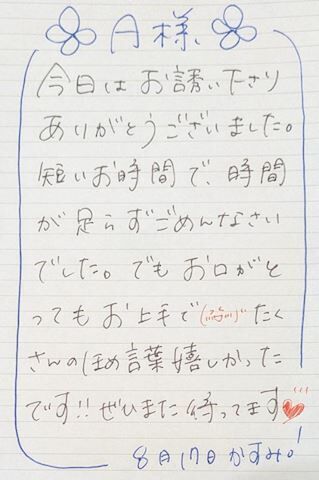 A様
今日はお誘いたさり
ありがとうございました。
短いお時間で、時間
が足らずごめんなさい
でした。でもお口がと
ってもお上手で たく
さんのほめ言葉嬉しかった
です!!ぜひまた待ってます
8月17日かすみ。!